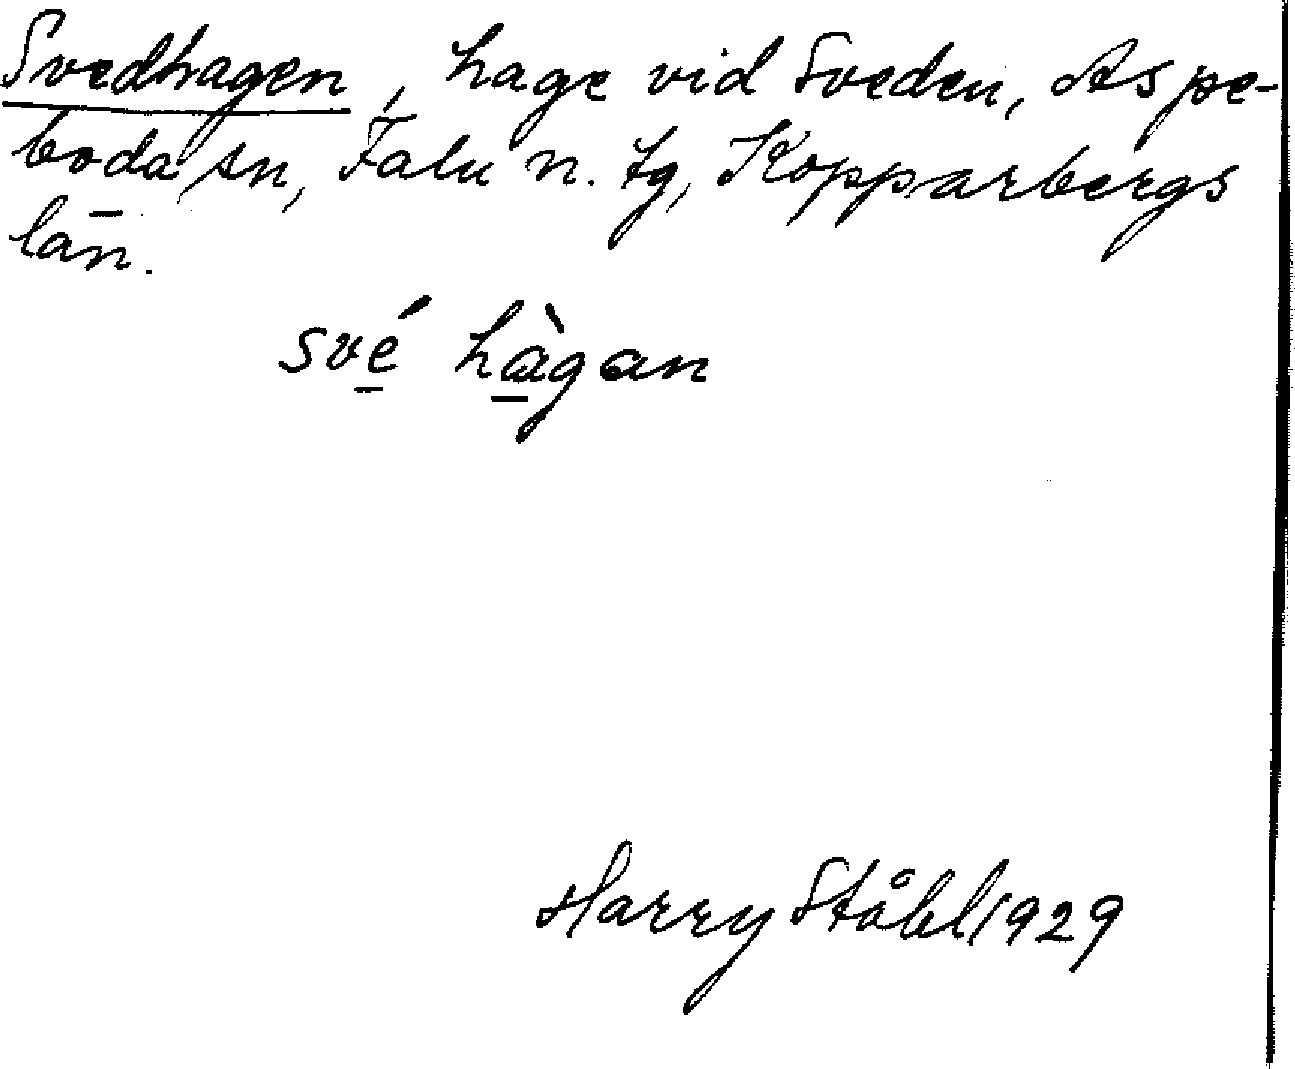 Svedhagen, hage vid Sveden, Aspe-
boda sn, Falu n. tg, Kopparbergs
län.
své hàgan
Harry Ståhl 1929